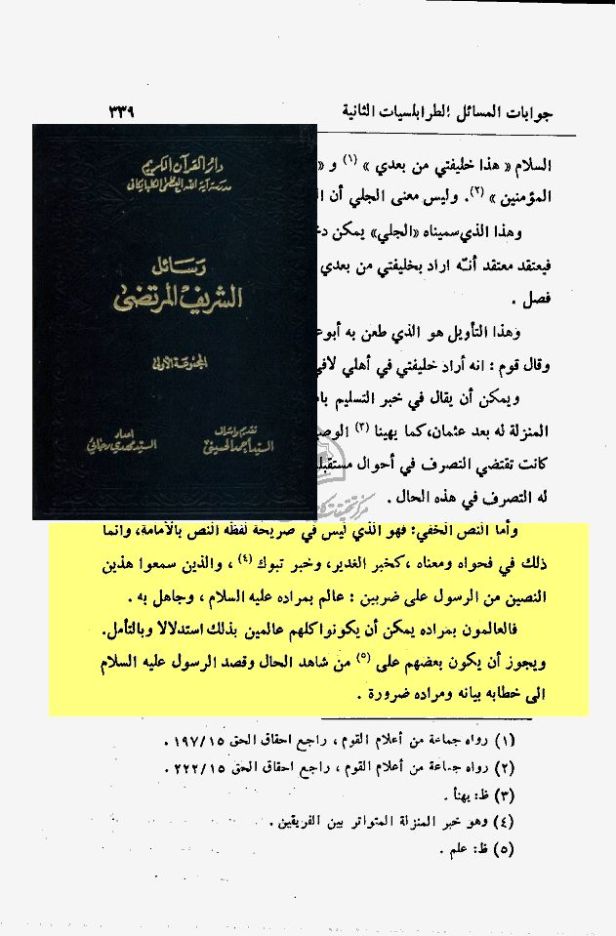 جوابات المسائل الطرابلسيات الثانية ٣٣٩
السلام « هذا خليفتي من بعدي » (١) و «
المؤمنين » (٢). وليس معنى الجلي أن
وهذا الذي سميناه «الجلي» يمكن
فيعتقد معتقد أنّه اراد بخليفتي من بعدي
فصل .
وهذا التأويل هو الذي طعن به
وقال قوم : انه أراد خليفتي في أهلي
ويمكن أن يقال في خبر التسليم
المنزلة له بعد عثمان، كما يهينا (٣)
كانت تقتضي التصرف في أحوال
له التصرف في هذه الحال .
دار القرآن الكريم
مدرسة آية الله العظمى الكلبايكاني
رسائل
الشريف المرتضى
المجموعة الأولى
تقديم واشراف
السيد أحمد الحسيني
اعداد
السيد مهدي رجائي
وأما النص الخفي: فهو الذي ليس في صريحة لفظه النص بالامامة، وانما
ذلك في فحواه ومعناه ، كخبر الغدير، وخبر تبوك (٤) ، والذين سمعوا هذين
النصين من الرسول على ضربين : عالم بمراده عليه السلام ، وجاهل به .
فالعالمون بمراده يمكن أن يكونوا كلهم عالمين بذلك استدلالا وبالتأمل.
ويجوز أن يكون بعضهم على (٥) من شاهد الحال وقصد الرسول عليه السلام
الى خطابه بيانه ومراده ضرورة .
(١) رواه جماعة من أعلام القوم ، راجع احقاق الحق ١٩٧/١٥ .
(٢) رواه جماعة من أعلام القوم ، راجع احقاق الحق ٢٢٢/١٥ .
(٣) ظ: يهنأ .
(٤) وهو خبر المنزلة المتواتر بين الفريقين .
(٥) ظ: علم .